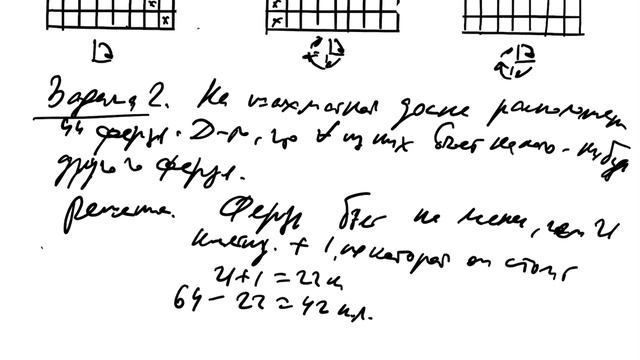 Задача 2. На шахматной доске расположены
44 ферзя. Д-ть, что ∀ из них бьет какого-нибудь
другого ферзя.
Решение. Ферзь бьет не менее, чем 21
клетку. + 1, на которой он стоит
21+1=22 к
64-22=42 кл.